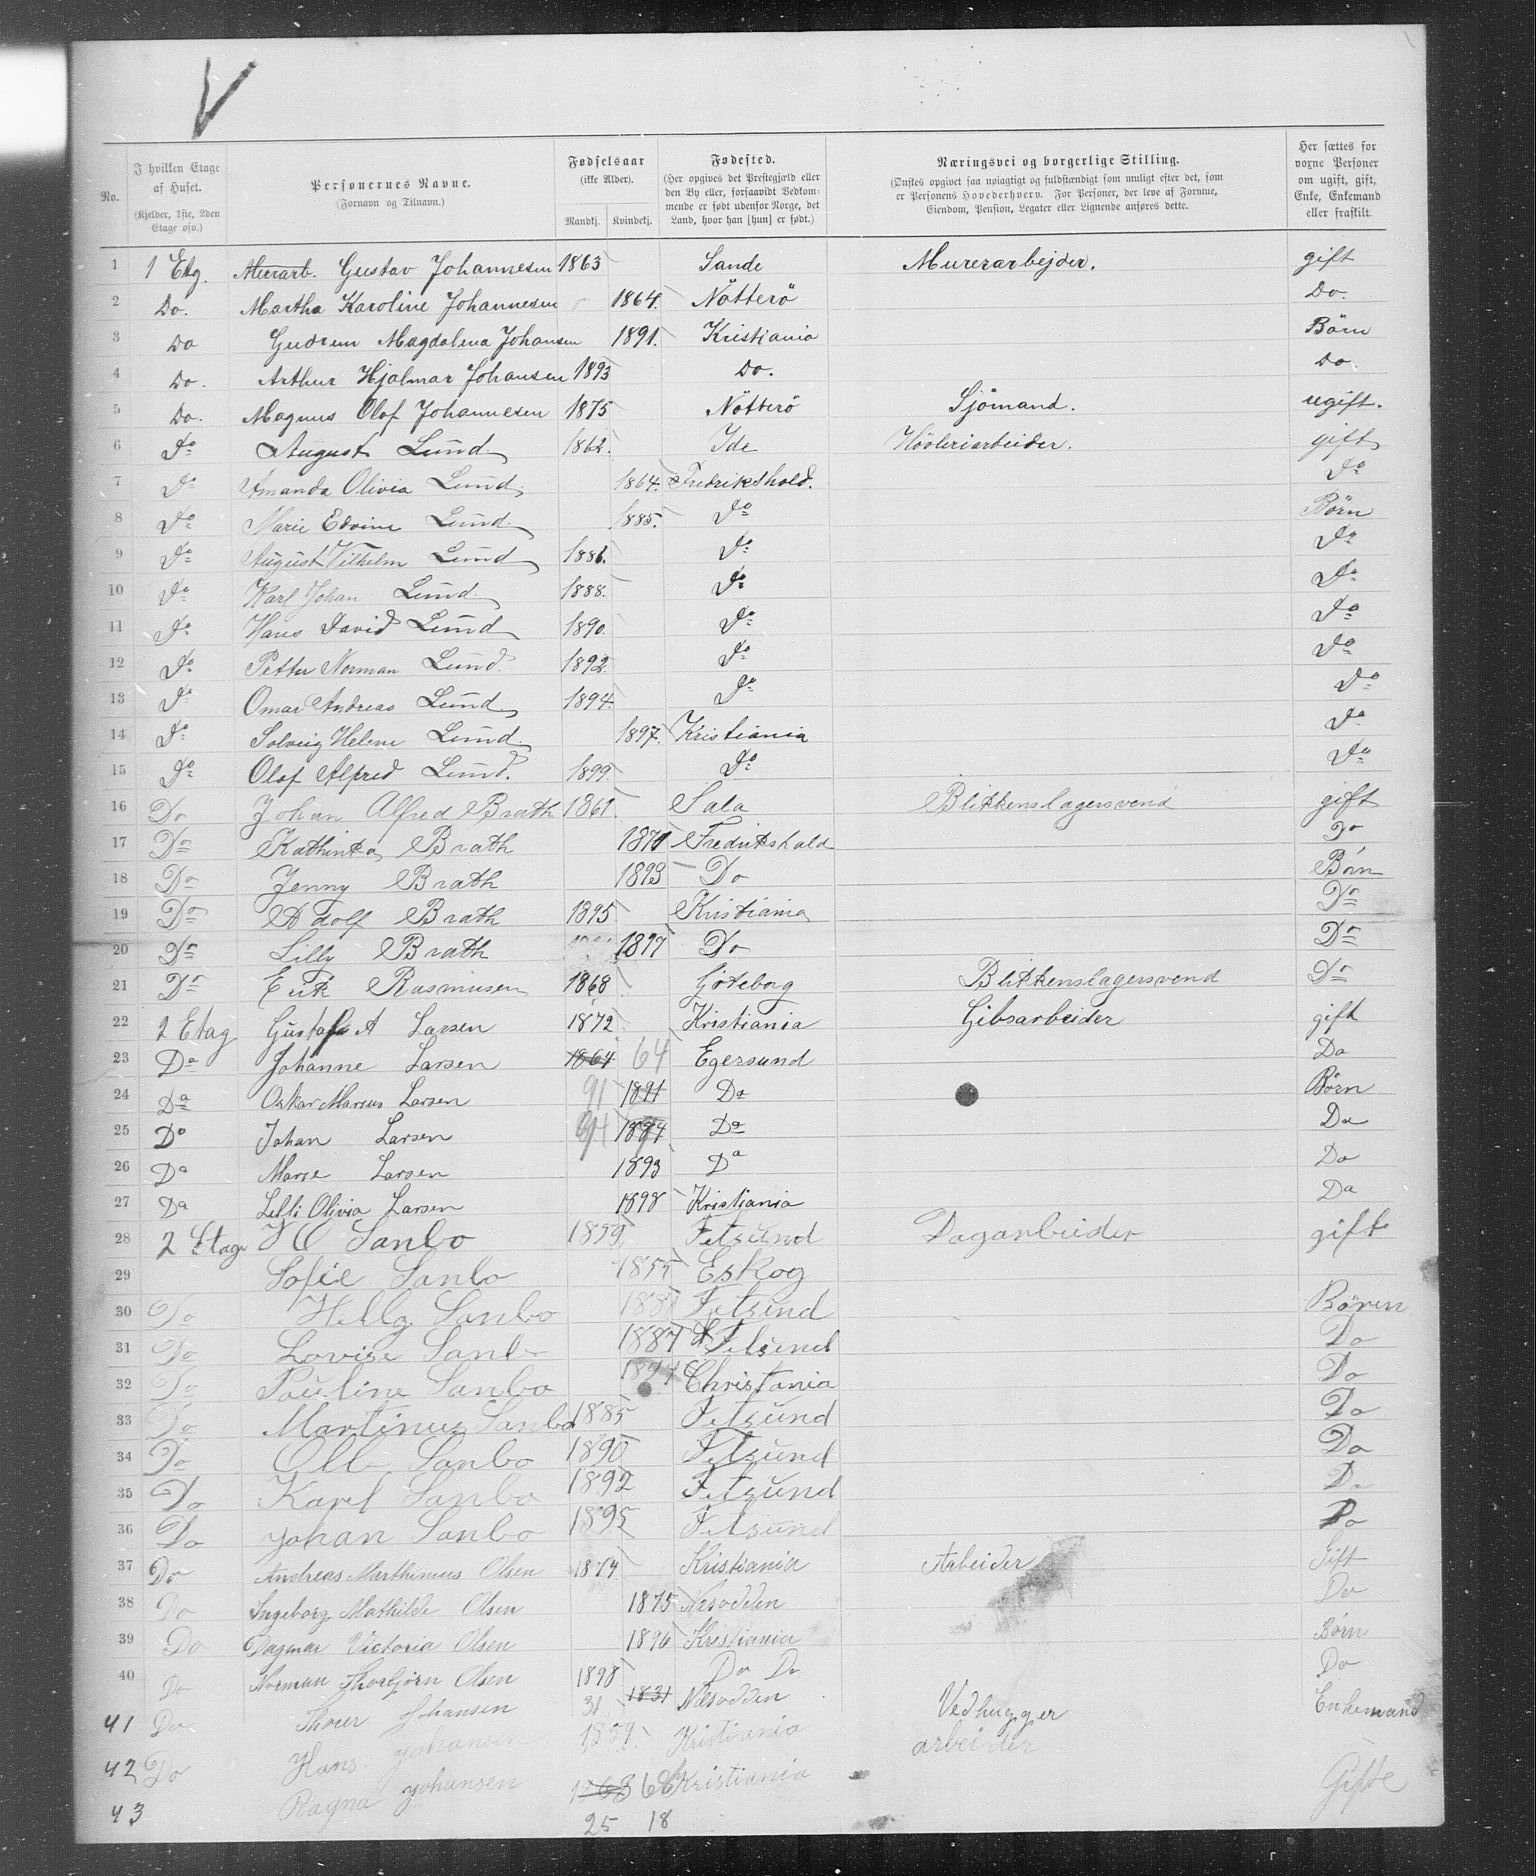 V
No. | I hvilken Etage af Huset. (Kjelder, 1ste, 2den Etage osv.) | Personernes Navne. (Fornavn og Tilnavn.) | Fødselsaar (ikke Alder). Mandkj. | Kvindekj. | Fødested. (Her opgives det Præstegjæld eller den By eller, forsaavidt Vedkommende er født udenfor Norge, det Land, hvor han [hun] er født.) | Næringsvei og borgerlige Stilling. (Ønskes opgivet saa nøiagtigt og fuldstændigt som muligt efter det, som er Personens Hovederhverv. For Personer, der leve af Formue, Eiendom, Pension, Legater eller Lignende anføres dette. | Her sættes for voxne Personer om ugift, gift, Enke, Enkemand eller fraskilt.
1 1 Etg. Murarb. Gustav Johannesen 1863 Sande Murerarbejder. gift
2 Do. Martha Karoline Johannesen 1864. Nötterö Do.
3 Do Gudrun Magdalena Johansen 1891. Kristiania Börn
4 Do. Arthur Hjalmar Johansen 1893 Do. Do.
5 Do. Magnus Olof Johannesen 1875 Nötterö Sjömand. ugift.
6 Do August Lund 1862. Ide Hövleriarbeider. gift
7 Do Amanda Olivia Lund 1864. Fredrikshold. Do
8 Do Marie Edvine Lund 1885. Do Børn
9 Do August Vilhelm Lund 1886. Do Do
10 Do Karl Johan Lund 1888. Do Do
11 Do Hans David Lund 1890. Do Do
12 Do Petter Norman Lund 1892 Do Do
13 Do Omar Andreas Lund 1894. Do Do
14 Do Solveig Helene Lund 1897. Kristiania Do
15 Do Olof Alfred Lund. 1899. Do Do
16 Do Johan Alfred Brath 1861 Sala Blikkenslagersvend gift
17 Do Kathinka Brath 1871 Fredrikshald Do
18 Do Jenny Brath 1893 Do Børn
19 Do Adolf Brath 1895 Kristiania Do
20 Do Lilly Brath 1897 Do Do
21 Do Erik Rasmusen 1868 Göteborg Blikkenslagersvend Do
22 2 Etag Gustaf A Larsen 1872 Kristiania Gibsarbeider gift
23 Do Johanne Larsen 1864 64 Egersund Do
24 Do Oskar Marius Larsen 91 1891 Do Børn
25 Do Johan Larsen 94 1894 Do Do
26 Do Marie Larsen 1893 Do Do
27 Do Lilli Olivia Larsen 1898 Kristiania Do
28 2 Etage Sanbo 1859 Fetsund Dagarbeider gift
29 Sofie Sanbo 1855 Eskog
30 Do Helly Sanbo Fetsund Børen
31 Do Lovise Sanbo 1887 Fetsund Do
32 Do Pauline Sanbo Christania Do
33 Do Martinus Sanbo 1885 Fetsund Do
34 Do Olle Sanbo 1890 Fetsund Do
35 Do Karel Sanbo 1892 Fetsund Do
36 Do Johan Sanbo 1895 Fetsund Do
37 Do Andreas Marthinius Olsen 1874. Kristiania Arbeider Gift
38 Do Ingeborg Mathilde Olsen 1875 Nesodden Do
39 Do Dagmar Victoria Olsen 1896 Kristiania Børn
40 Do Norman Thorbjørn Olsen 1898 Do Do Do
41 Do Thorer Johansen 31 1831 Nesodden Vedhugger Enkemand
42 Do Hans Johansen Kristiania arbeider
43 Ragna Johansen 1868 68 Kristiania Gifte
25 18